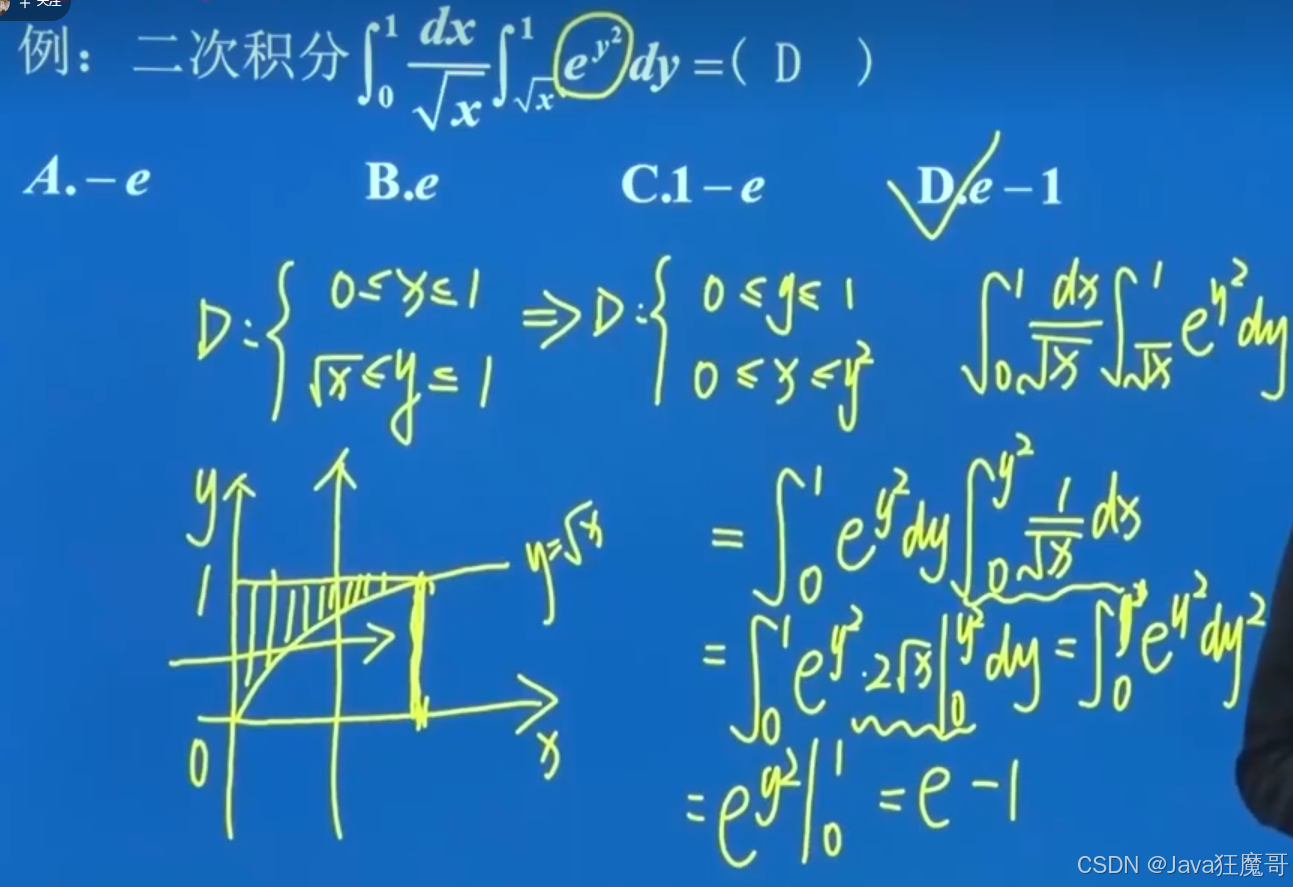 + 关注
例：二次积分∫₀¹ dx/√x ∫_√x¹ e^{y²} dy =( D )
A.－e B.e C.1－e D.e－1
D:{ 0≤x≤1 ⇒ D:{ 0≤y≤1 ∫₀¹ dx/√x ∫_√x¹ e^{y²} dy
√x≤y≤1 0≤x≤y²
y
1
y=√x
0
x
= ∫₀¹ e^{y²} dy ∫₀^{y²} 1/√x dx
= ∫₀¹ e^{y²}·2√x |₀^{y²} dy = ∫₀ e^{y²} dy²
= e^{y²} |₀¹ = e－1
CSDN @Java狂魔哥